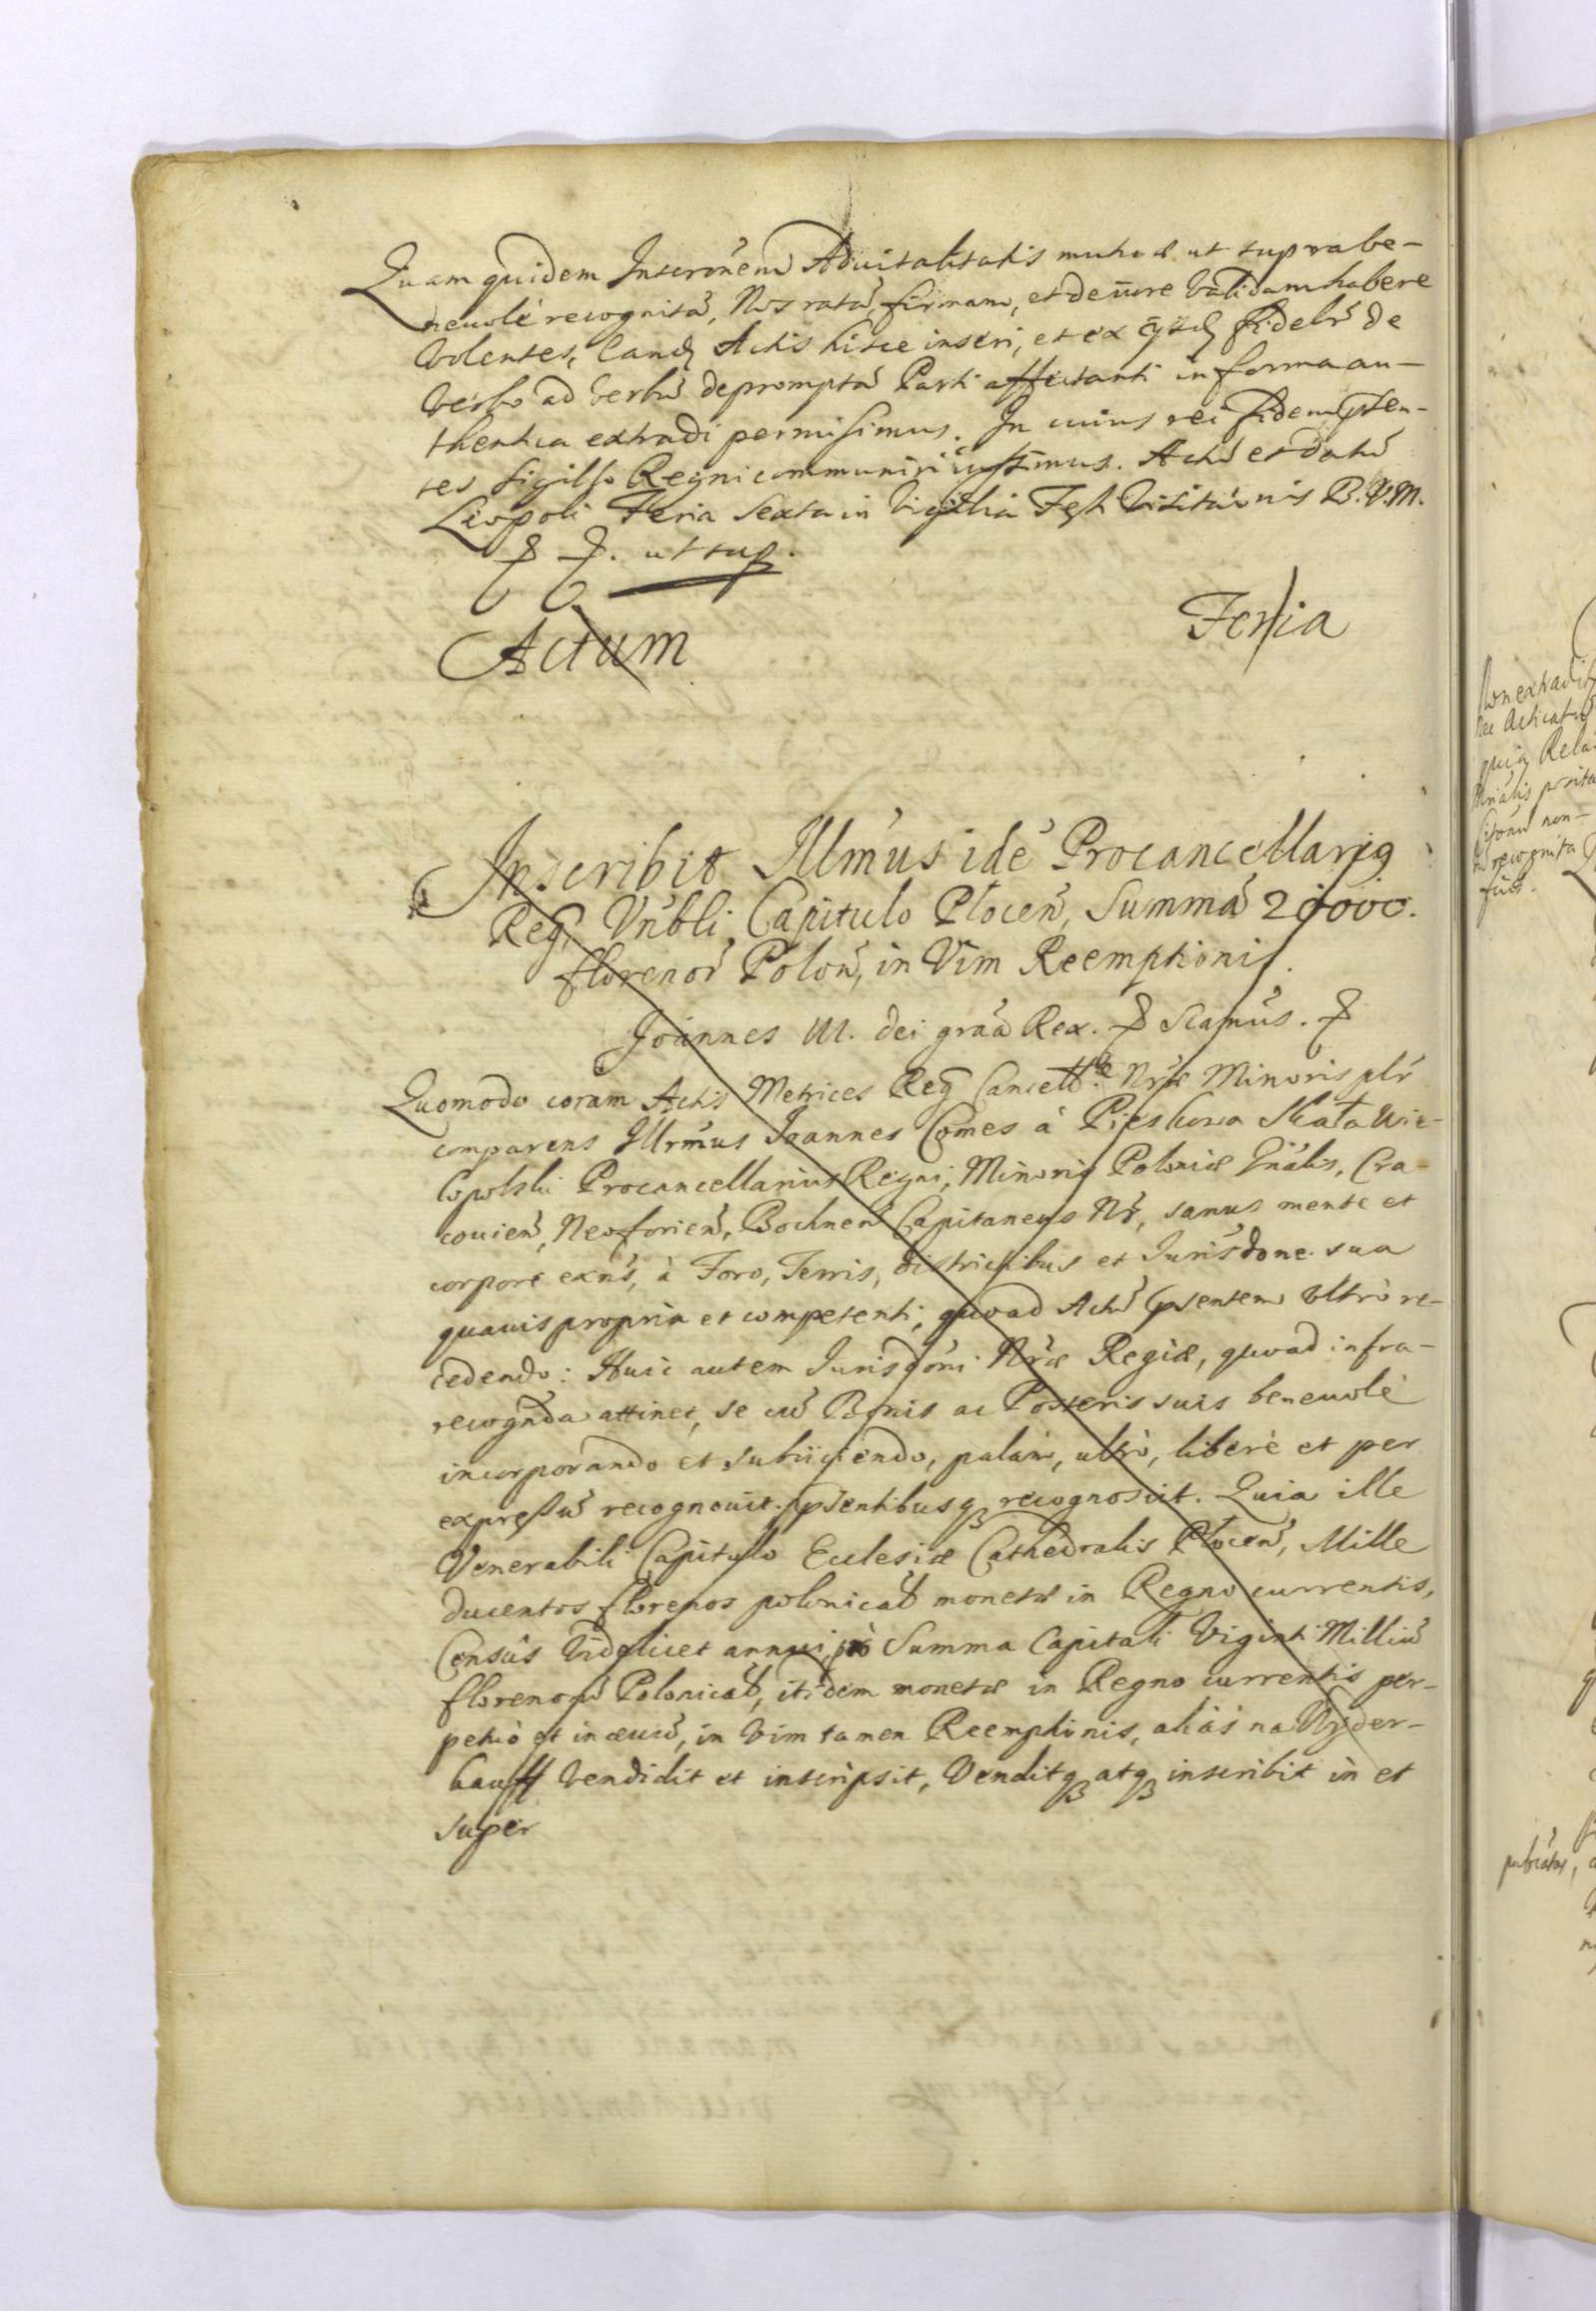 Quam quidem Inscrõnem Aduitalitatis mutuæ ut supra be-
neuolè recognitã, Nos ratã, firmam, et de iure validam habere
volentes, eandẽ Actis hisce inseri, et ex ijsdẽ fidelr̃ de
verbo ad verbũ depromptã Parti affectanti in forma au-
thentica extradi permisimus. In cuius rei fidem p̃sen-
tes sigillo Regni communiri iussimus. Actũ et datũ
Leopoli Feria Sexta in Vigilia Festi Visitatiõnis B.V.M.
ut sup.
Feria
Actum
Inscribit Illm̃us idẽ Procancellariq
Regñ Vñbli Capitulo Płocen̄, Summã 20000.
florenor̃ Polon̄, in Vim Reemptionis.
Joannes III. dei grã̃a Rex. Scamũs.
Quomodo coram Actis Metrices Regñ Cancell: Nr̃æ Minoris plr̃
comparens Illr̃mus Joannes Comes à Pieskowa Skała Wie-
lopolski Procancellarius Regni, Minoris Poloniæ Gñalis, Cra-
couien̄, Neoforien̄, Bochnen̄ Capitaneus Nr̃, sanus mente et
corpore exñs, à Foro, Terris, districtibus et Jurisdone sua
quauis propria et competenti, quoad Actũ p̃sentem vltrò re-
cedendo: Huic autem Jurisdõni Nr̃æ Regiæ, quoad infra-
recogñda attinet, se cũ Bonis ac Posteris suis beneuolè
incorporando et subijciendo, palàm, ultrò, liberè et per
expręssũ recognouit. P̃sentibusq recognoscit. Quia ille
Venerabili Capitulo Ecclesiæ Cathedralis Płocen̄, Mille
ducentos florenos polonicał monetæ in Regno currentis,
Censùs videlicet annui, prò Summa Capitali Viginti Milliũ
florenorũ Polonicał, itidem monetæ in Regno currentis per-
petuò et in æuũ, in vim tamen Reemptionis, aliàs na Wyder-
kauff vendidit et inscripsit, Venditq atq inscribit in et
super
non extradit
nec Acticat
quia Rela
non-
recognita
fuit.